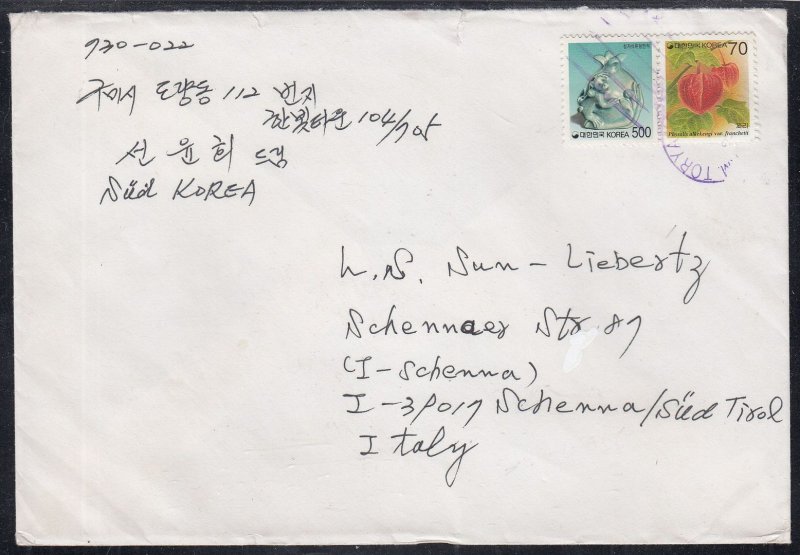 730-022
구미시 도량동 112 번지
한빛타운 104/705
선 윤 희 드림
Süd KOREA
대한민국 KOREA 500
대한민국 KOREA 70
꽈리
Physalis alkekengi var. franchetii
TORYA
h.S. Sun - Liebertz
Schennaer Str 87
(I-Schenna)
I-39017 Schenna/Süd Tirol
Italy